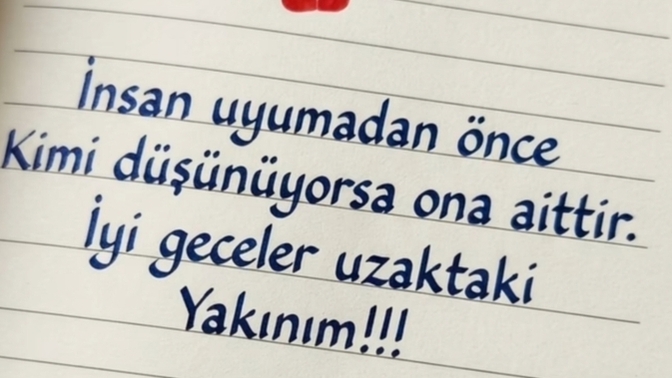 İnsan uyumadan önce
Kimi düşünüyorsa ona aittir.
İyi geceler uzaktaki
Yakınım!!!